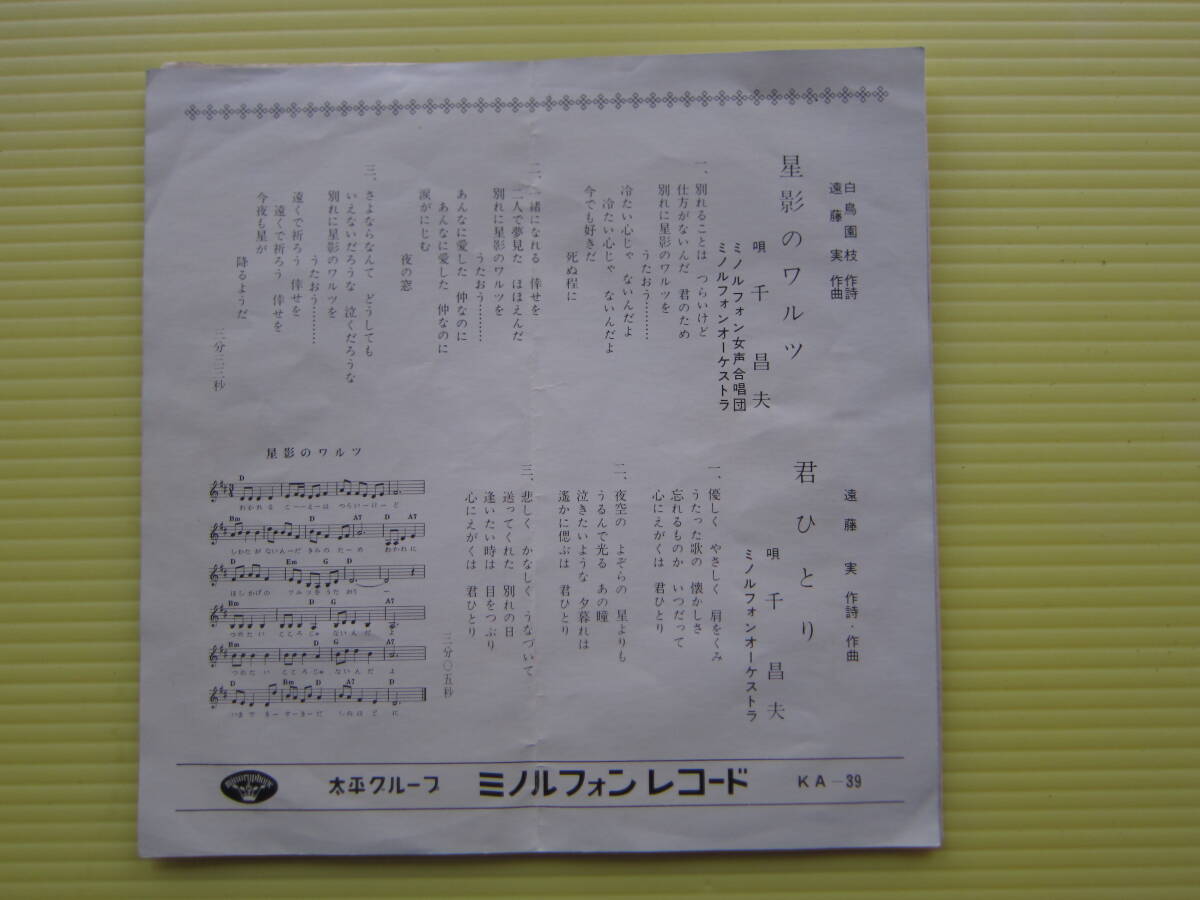 白鳥園枝 作詩
遠藤 実 作曲
星影のワルツ
唄 千昌夫
ミノルフォン女声合唱団
ミノルフォンオーケストラ
一、別れることは つらいけど
仕方がないんだ 君のため
別れに星影のワルツを
うたおう…………
冷たい心じゃ ないんだよ
冷たい心じゃ ないんだよ
今でも好きだ
死ぬ程に
二、一緒になれる 倖せを
二人で夢見た ほほえんだ
別れに星影のワルツを
うたおう…………
あんなに愛した 仲なのに
あんなに愛した 仲なのに
涙がにじむ
夜の窓
三、さよならなんて どうしても
いえないだろうな 泣くだろうな
別れに星影のワルツを
うたおう…………
遠くで祈ろう 倖せを
遠くで祈ろう 倖せを
今夜も星が
降るようだ
遠藤 実 作詩・作曲
君ひとり
唄 千昌夫
ミノルフォンオーケストラ
一、優しく やさしく 肩をくみ
うたった歌の 懐かしさ
忘れるものか いつだって
心にえがくは 君ひとり
二、夜空の よぞらの 星よりも
うるんで光る あの瞳
泣きたいような 夕暮れは
遙かに偲ぶは 君ひとり
三、悲しく かなしく うなづいて
送ってくれた 別れの日
逢いたい時は 目をつぶり
心にえがくは 君ひとり
三分〇五秒
星影のワルツ
D
わかれる こーーとーは つらいーけーど
Bm D A7 D A7
しかたが ないんーだ きみの たーめ わかれに
D Em G D
ほしかげの ワルツを うた おう ー
Bm D G A7
つめたい こころじゃ ないんだ よ
Bm D G A7
つめたい こころじゃ ないんだ よ
D Bm D A7 D
いまで もーすーきーだ しぬほど に
minoruphone
太平グループ ミノルフォンレコード KA-39